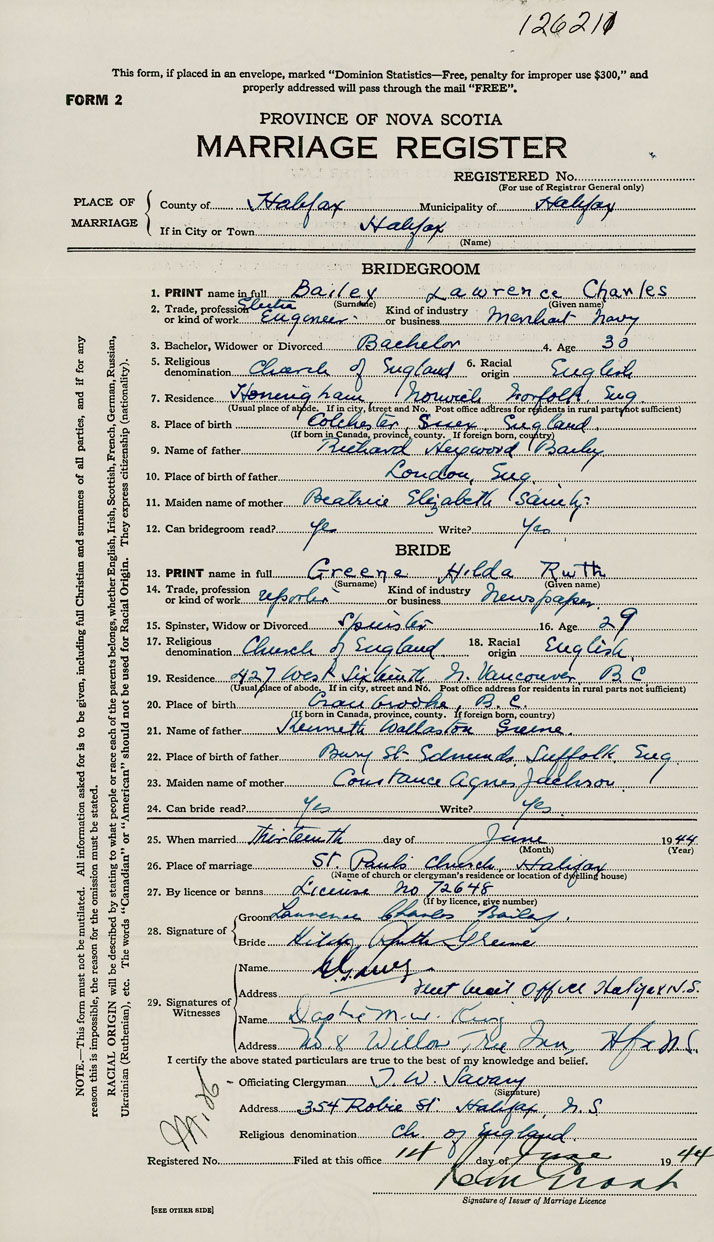 126211
This form, if placed in an envelope, marked "Dominion Statistics—Free, penalty for improper use $300," and
properly addressed will pass through the mail "FREE".
FORM 2
PROVINCE OF NOVA SCOTIA
MARRIAGE REGISTER
REGISTERED No.
(For use of Registrar General only)
PLACE OF MARRIAGE
County of Halifax Municipality of Halifax
If in City or Town Halifax
(Name)
BRIDEGROOM
1. PRINT name in full Bailey Lawrence Charles
(Surname) (Given name)
2. Trade, profession or kind of work Engineer Kind of industry or business Merchant Navy
3. Bachelor, Widower or Divorced Bachelor 4. Age 30
5. Religious denomination Church of England 6. Racial origin English
7. Residence Honingham, Norwich Norfolk Eng.
(Usual place of abode. If in city, street and No. Post office address for residents in rural parts not sufficient)
8. Place of birth Colchester, England
(If born in Canada, province, county. If foreign born, country)
9. Name of father Richard Heywood Bailey
10. Place of birth of father London, Eng.
11. Maiden name of mother Beatrice Elizabeth
12. Can bridegroom read? Yes Write? Yes
BRIDE
13. PRINT name in full Greene Hilda Ruth
(Surname) (Given name)
14. Trade, profession or kind of work reporter Kind of industry or business Newspaper
15. Spinster, Widow or Divorced Spinster 16. Age 29
17. Religious denomination Church of England 18. Racial origin English
19. Residence 427 West Sixteenth N. Vancouver, B C
(Usual place of abode. If in city, street and No. Post office address for residents in rural parts not sufficient)
20. Place of birth Cranbrooke, B.C.
(If born in Canada, province, county. If foreign born, country)
21. Name of father Kenneth Wallaston Greene
22. Place of birth of father Bury St. Edmunds, Suffolk Eng
23. Maiden name of mother Constance Agnes Jackson
24. Can bride read? Yes Write? Yes
25. When married Thirteenth day of June 1944
(Month) (Year)
26. Place of marriage St. Paul's Church, Halifax
(Name of church or clergyman's residence or location of dwelling house)
27. By licence or banns License No 72648
(If by licence, give number)
28. Signature of
Groom Lawrence Charles Bailey.
Bride Hilda Ruth Greene
29. Signatures of Witnesses
Name
Address Fleet Mail Office Halifax N.S.
Name Daphne M. W. King
Address No 8 Willow Tree Inn, Hfx N.S.
I certify the above stated particulars are true to the best of my knowledge and belief.
Officiating Clergyman T. W. Savary
(Signature)
Address 354 Robie St. Halifax, N.S.
Religious denomination Ch. of England
Registered No. Filed at this office day of June 1944
Signature of Issuer of Marriage Licence
[SEE OTHER SIDE]
NOTE.—This form must not be mutilated. All information asked for is to be given, including full Christian and surnames of all parties, and if for any
reason this is impossible, the reason for the omission must be stated.
RACIAL ORIGIN will be described by stating to what people or race each of the parents belongs, whether English, Irish, Scottish, French, German, Russian,
Ukrainian (Ruthenian), etc. The words "Canadian" or "American" should not be used for Racial Origin. They express citizenship (nationality).